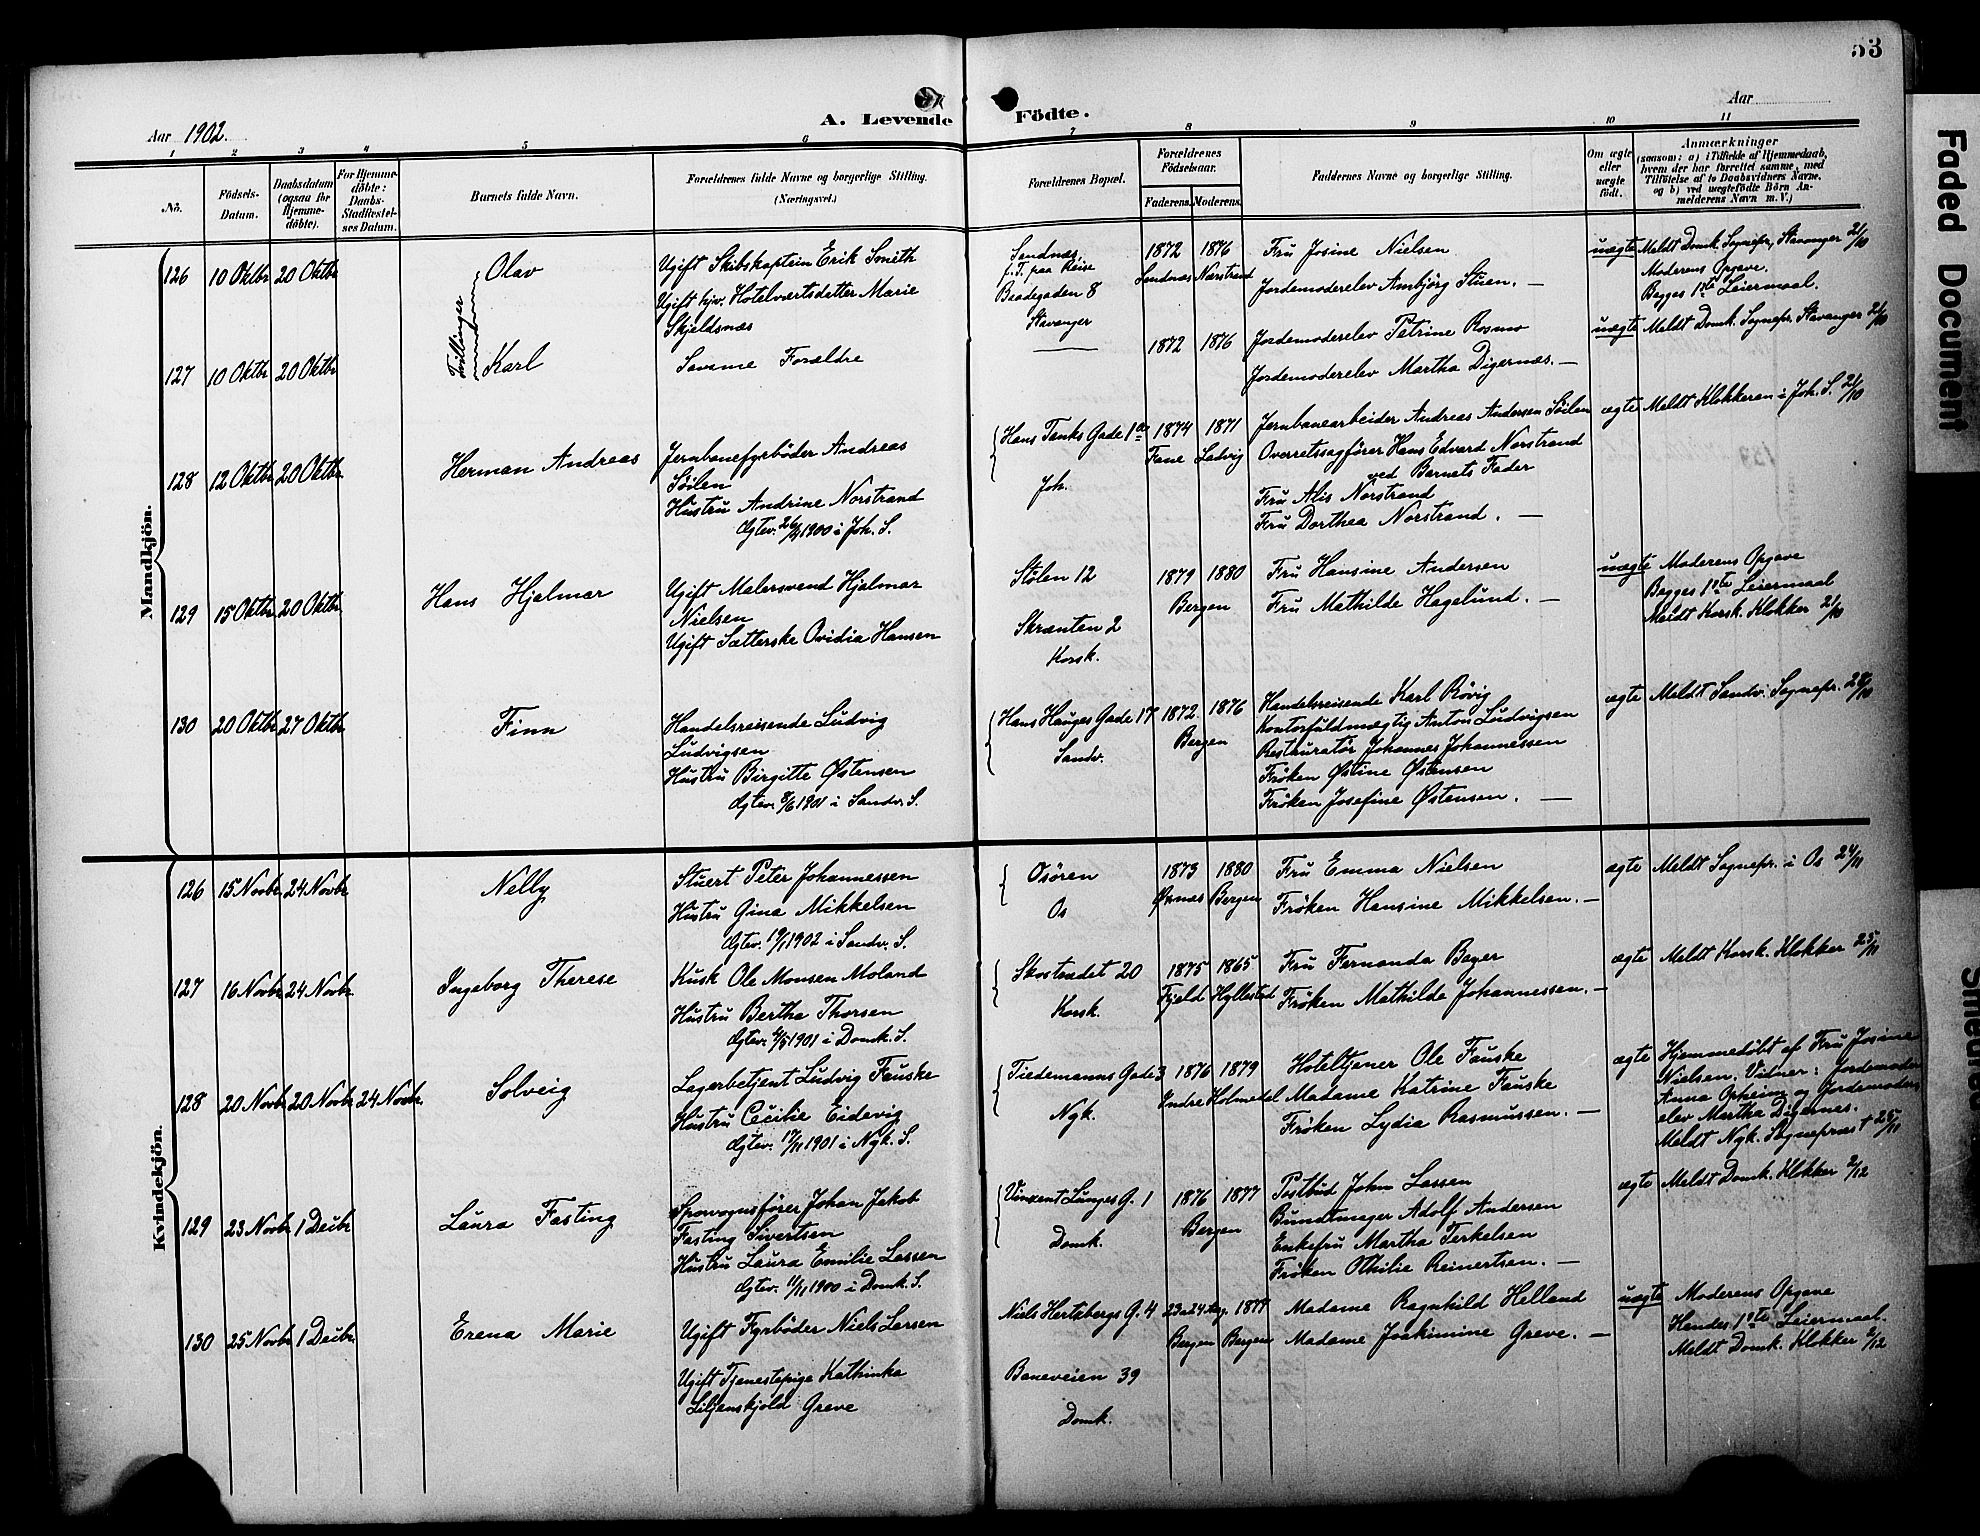 53
A. Levende Födte.
Aar 1902.
Aar
1 2 3 4 5 6 7 8 9 10 11
No.
Födsels-Datum.
Daabsdatum (ogsaa for Hjemme-döbte).
For Hjemme-döbte: Daabs-Stadfæstel-ses Datum.
Barnets fulde Navn.
Forældrenes fulde Navne og borgerlige Stilling. (Næringsvei.)
Forældrenes Bopæl.
Forældrenes Födselsaar.
Faderens. Moderens.
Faddernes Navne og borgerlige Stilling.
Om ægte eller uægte født.
Anmærkninger
(saasom: a) i Tilfælde af Hjemmedaab, hvem der har forrettet samme, med Tilföielse af to Daabsvidners Navne, og b) ved uægtefödte Börn An-melderens Navn m. V.)
Mandkjön.
126 10 Oktbr 20 Oktbr Olav
Tvillinger
Ugift Skibskaptein Erik Smeth
Ugift hjv. Hotelværtsdatter Marie
Skjeldsnæs
Sandnæs,
f. T. paa Reise
Breadegaden 8
Stavanger
1872 1876
Sandnæs Nærstrand
Fru Josine Nielsen
Jordemoderelev Ambjörg Stuen. —
uægte Meldt Domk. Sognepr., Stavanger 21/10
Moderens Opgave.
Begges 1ste Leiermaal.
127 10 Oktbr 20 Oktbr Karl
Samme Forældre
1872 1876
Jordemoderelev Petrine Rosmo
Jordemoderelev Martha Digernæs. —
uægte Meldt Domk. Sognepr. Stavanger 21/10
128 12 Oktbr 20 Oktbr Herman Andreas
Jernbanefyrbøder Andreas
Søilen
Hustru Andrine Norstrand
Ægtev. 26/4 1900 i Joh. S.
Hans Tanks Gade 1a
Joh.
1874 1871
Fane Ladvig
Jernbanearbeider Andreas Andersen Søilen
Overretssagfører Hans Edvard Norstrand
ved Barnets Fader
Fru Alis Norstrand
Fru Dorthea Norstrand. —
ægte Meldt Klokkeren i Joh. S. 21/10
129 15 Oktbr 20 Oktbr Hans Hjalmar
Ugift Malersvend Hjalmar
Nielsen
Ugift Sætterske Ovidia Hansen
Stølen 12
Skrænten 2
Korsk.
1879 1880
Bergen
Fru Hansine Andersen
Fru Mathilde Hagelund. —
uægte Moderens Opgave
Begges 1ste Leiermaal
Meldt Korsk. Klokker 21/10
130 20 Oktbr 27 Oktbr Finn
Handelsreisende Ludvig
Ludvigsen
Hustru Birgitte Østensen
Ægtev. 8/6 1901 i Sandv. S.
Hans Hauges Gade 17
Sandv.
1872 1876
Bergen
Handelsreisende Karl Røvig
Kontorfuldmægtig Anton Ludvigsen
Restauratør Johannes Johannessen
Frøken Østine Østensen
Frøken Josefine Østensen. —
ægte Meldt Sandv. Sognepr. 28/10
Kvindekjön.
126 15 Novbr 24 Novbr Nelly
Stuert Peter Johannessen
Hustru Gina Mikkelsen
Ægtev. 19/1 1902 i Sandv. S.
Osören
Os
1873 1880
Ørnæs Bergen
Fru Emma Nielsen
Frøken Hansine Mikkelsen. —
ægte Meldt Sognepr. i Os 24/11
127 16 Novbr 24 Novbr Ingeborg Therese
Kusk Ole Monsen Moland
Hustru Bertha Thorsen
Ægtev. 4/5 1901 i Domk. S.
Skostrædet 20
Korsk.
1875 1865
Fjeld Hyllestad
Fru Fernanda Beyer
Frøken Mathilde Johannessen. —
ægte Meldt Korsk. Klokker 25/11
128 20 Novbr 20 Novbr 24 Novbr Solveig
Lagerbetjent Ludvig Fauske
Hustru Cecilie Eidevig
Ægtev. 17/11 1901 i Nyk. S.
Tiedemanns Gade 3
Nyk.
1876 1879
Indre Holmedal
Hoteltjener Ole Fauske
Madame Katrine Fauske
Frøken Lydia Rasmussen. —
ægte Hjemmedøbt af Fru Josine
Nielsen. Vidner: Jordemoder
Anna Opheim og Jordemoder
elev Martha Digernæs.
Meldt Nyk. Sognepræst 25/11
129 23 Novbr 1 Decbr Laura Fasting
Sporvognsfører Johan Jakob
Fasting Sivertsen
Hustru Laura Emilie Lassen
Ægtev. 11/11 1900 i Domk. S.
Vinzent Lunges G. 1
Domk.
1876 1877
Bergen
Postbud John Lassen
Bundtmager Adolf Andersen
Enkefru Martha Terkelsen
Frøken Othilie Reinertsen. —
ægte Meldt Domk. Klokker 2/12
130 25 Novbr 1 Decbr Erena Marie
Ugift Fyrbøder Niels Larsen
Ugift Tjenestepige Kathinka
Liljenskjold Greve
Niels Hertzbergs G. 4
Baneveien 39
Domk.
23 a 24 Aar. 1877
Bergen Bergen
Madame Ragnhild Helland
Madame Joakimine Greve. —
uægte Moderens Opgave
Hendes 1ste Leiermaal.
Meldt Domk. Klokker 2/12
Faded Document